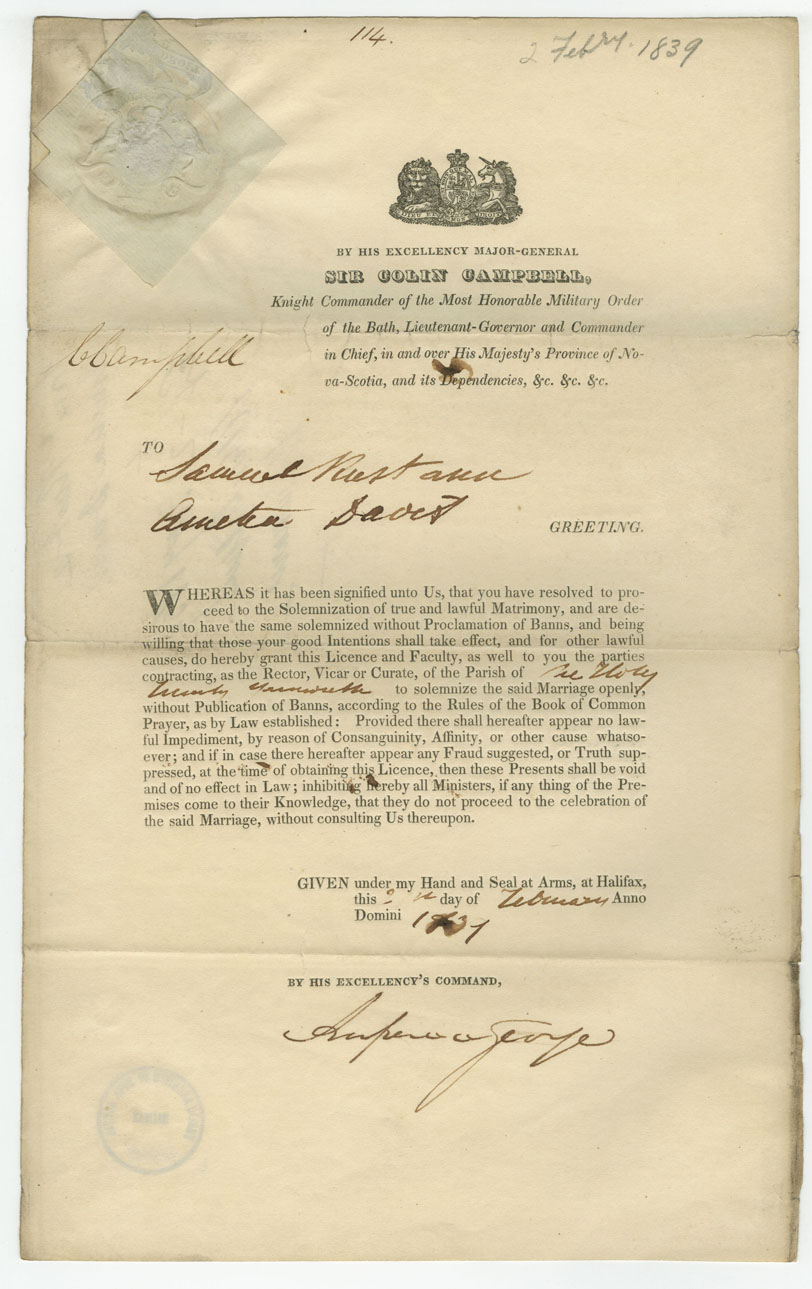 114.
2 Febry. 1839
BY HIS EXCELLENCY MAJOR-GENERAL
SIR COLIN CAMPBELL,
Knight Commander of the Most Honorable Military Order
of the Bath, Lieutenant-Governor and Commander
in Chief, in and over His Majesty's Province of No-
va-Scotia, and its Dependencies, &c. &c. &c.
CCampbell
TO
Samuel
Amelia Davis
GREETING.
WHEREAS it has been signified unto Us, that you have resolved to pro-
ceed to the Solemnization of true and lawful Matrimony, and are de-
sirous to have the same solemnized without Proclamation of Banns, and being
willing that those your good Intentions shall take effect, and for other lawful
causes, do hereby grant this Licence and Faculty, as well to you the parties
contracting, as the Rector, Vicar or Curate, of the Parish of the Holy
Trinity Yarmouth to solemnize the said Marriage openly,
without Publication of Banns, according to the Rules of the Book of Common
Prayer, as by Law established: Provided there shall hereafter appear no law-
ful Impediment, by reason of Consanguinity, Affinity, or other cause whatso-
ever; and if in case there hereafter appear any Fraud suggested, or Truth sup-
pressed, at the time of obtaining this Licence, then these Presents shall be void
and of no effect in Law; inhibiting hereby all Ministers, if any thing of the Pre-
mises come to their Knowledge, that they do not proceed to the celebration of
the said Marriage, without consulting Us thereupon.
GIVEN under my Hand and Seal at Arms, at Halifax,
this day of February Anno
Domini 1839
BY HIS EXCELLENCY'S COMMAND,
Rupert D George